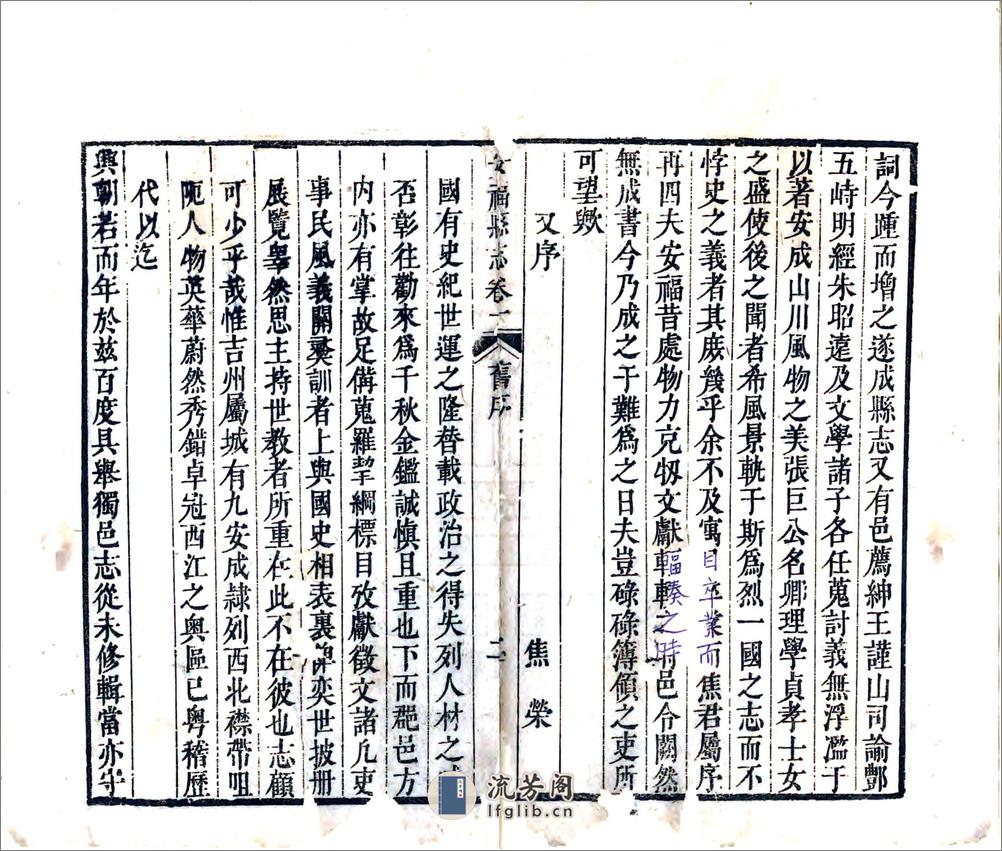 詞今踵而增之遂成縣志又有邑薦紳王謹山司諭酆
五峙明經朱昭遠及文學諸子各任蒐討義無浮濫于
以著安成山川風物之美張巨公名卿理學貞孝士女
之盛使後之聞者希風景軌于斯為烈一國之志而不
悖史之義者其庶幾乎余不及寓目卒業而焦君屬序
再四夫安福昔處物力充牣文獻輻輳之時邑令闕然
無成書今乃成之于難為之日夫豈碌碌簿領之吏所
可望歟
又序 焦榮
安福縣志卷一 舊序 二
國有史紀世運之隆替載政治之得失列人材之
否彰往勸來為千秋金鑑誠慎且重也下而郡邑方
內亦有掌故足備蒐羅挈綱標目攷獻徵文諸凡吏
事民風義關彛訓者上與國史相表裏俾奕世披册
展覽舉然思主持世教者所重在此不在彼也志顧
可少乎哉惟吉州屬城有九安成隷列西北襟帶咀
阨人物英華蔚然秀錯卓冠西江之奧區已粤稽歷
代以迄
興朝若而年於兹百度具舉獨邑志從未修輯當亦守
流芳阁
lfglib.cn